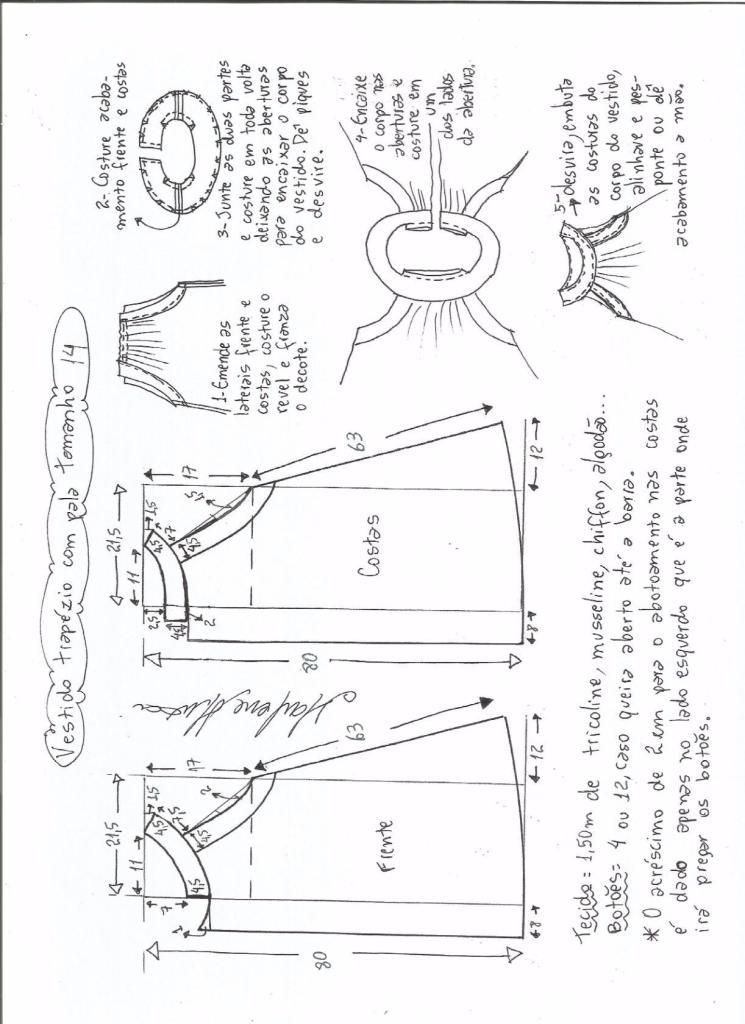 Vestido trapézio com pala tamanho 14
21,5
11
1,5
4,5
7,5
7
4,5
4,5
1
2
17
63
80
Frente
8
12
Marlene Mukai
21,5
11
1,5
4,5
7
2,5
4,5
4,5
2
1,5
17
63
80
Costas
8
12
1-Emende as
laterais frente e
costas, costure o
revel e franza
o decote.
2-Costure acaba-
mento frente e costas
3-Junte as duas partes
e costure em toda volta
deixando as aberturas
para encaixar o corpo
do vestido. Dê piques
e desvire.
4-Encaixe
o corpo nas
aberturas e
costure em
um
dos lados
da abertura.
5-desvira, embuta
as costuras do
corpo do vestido,
alinhave e pes-
ponte ou dê
acabamento a mão.
Tecido = 1,50m de tricoline, musseline, chiffon, algodão...
Botões = 4 ou 12, caso queira aberto até a barra.
* O acréscimo de 2cm para o abotoamento nas costas
é dado apenas no lado esquerdo que é a parte onde
irá pregar os botões.